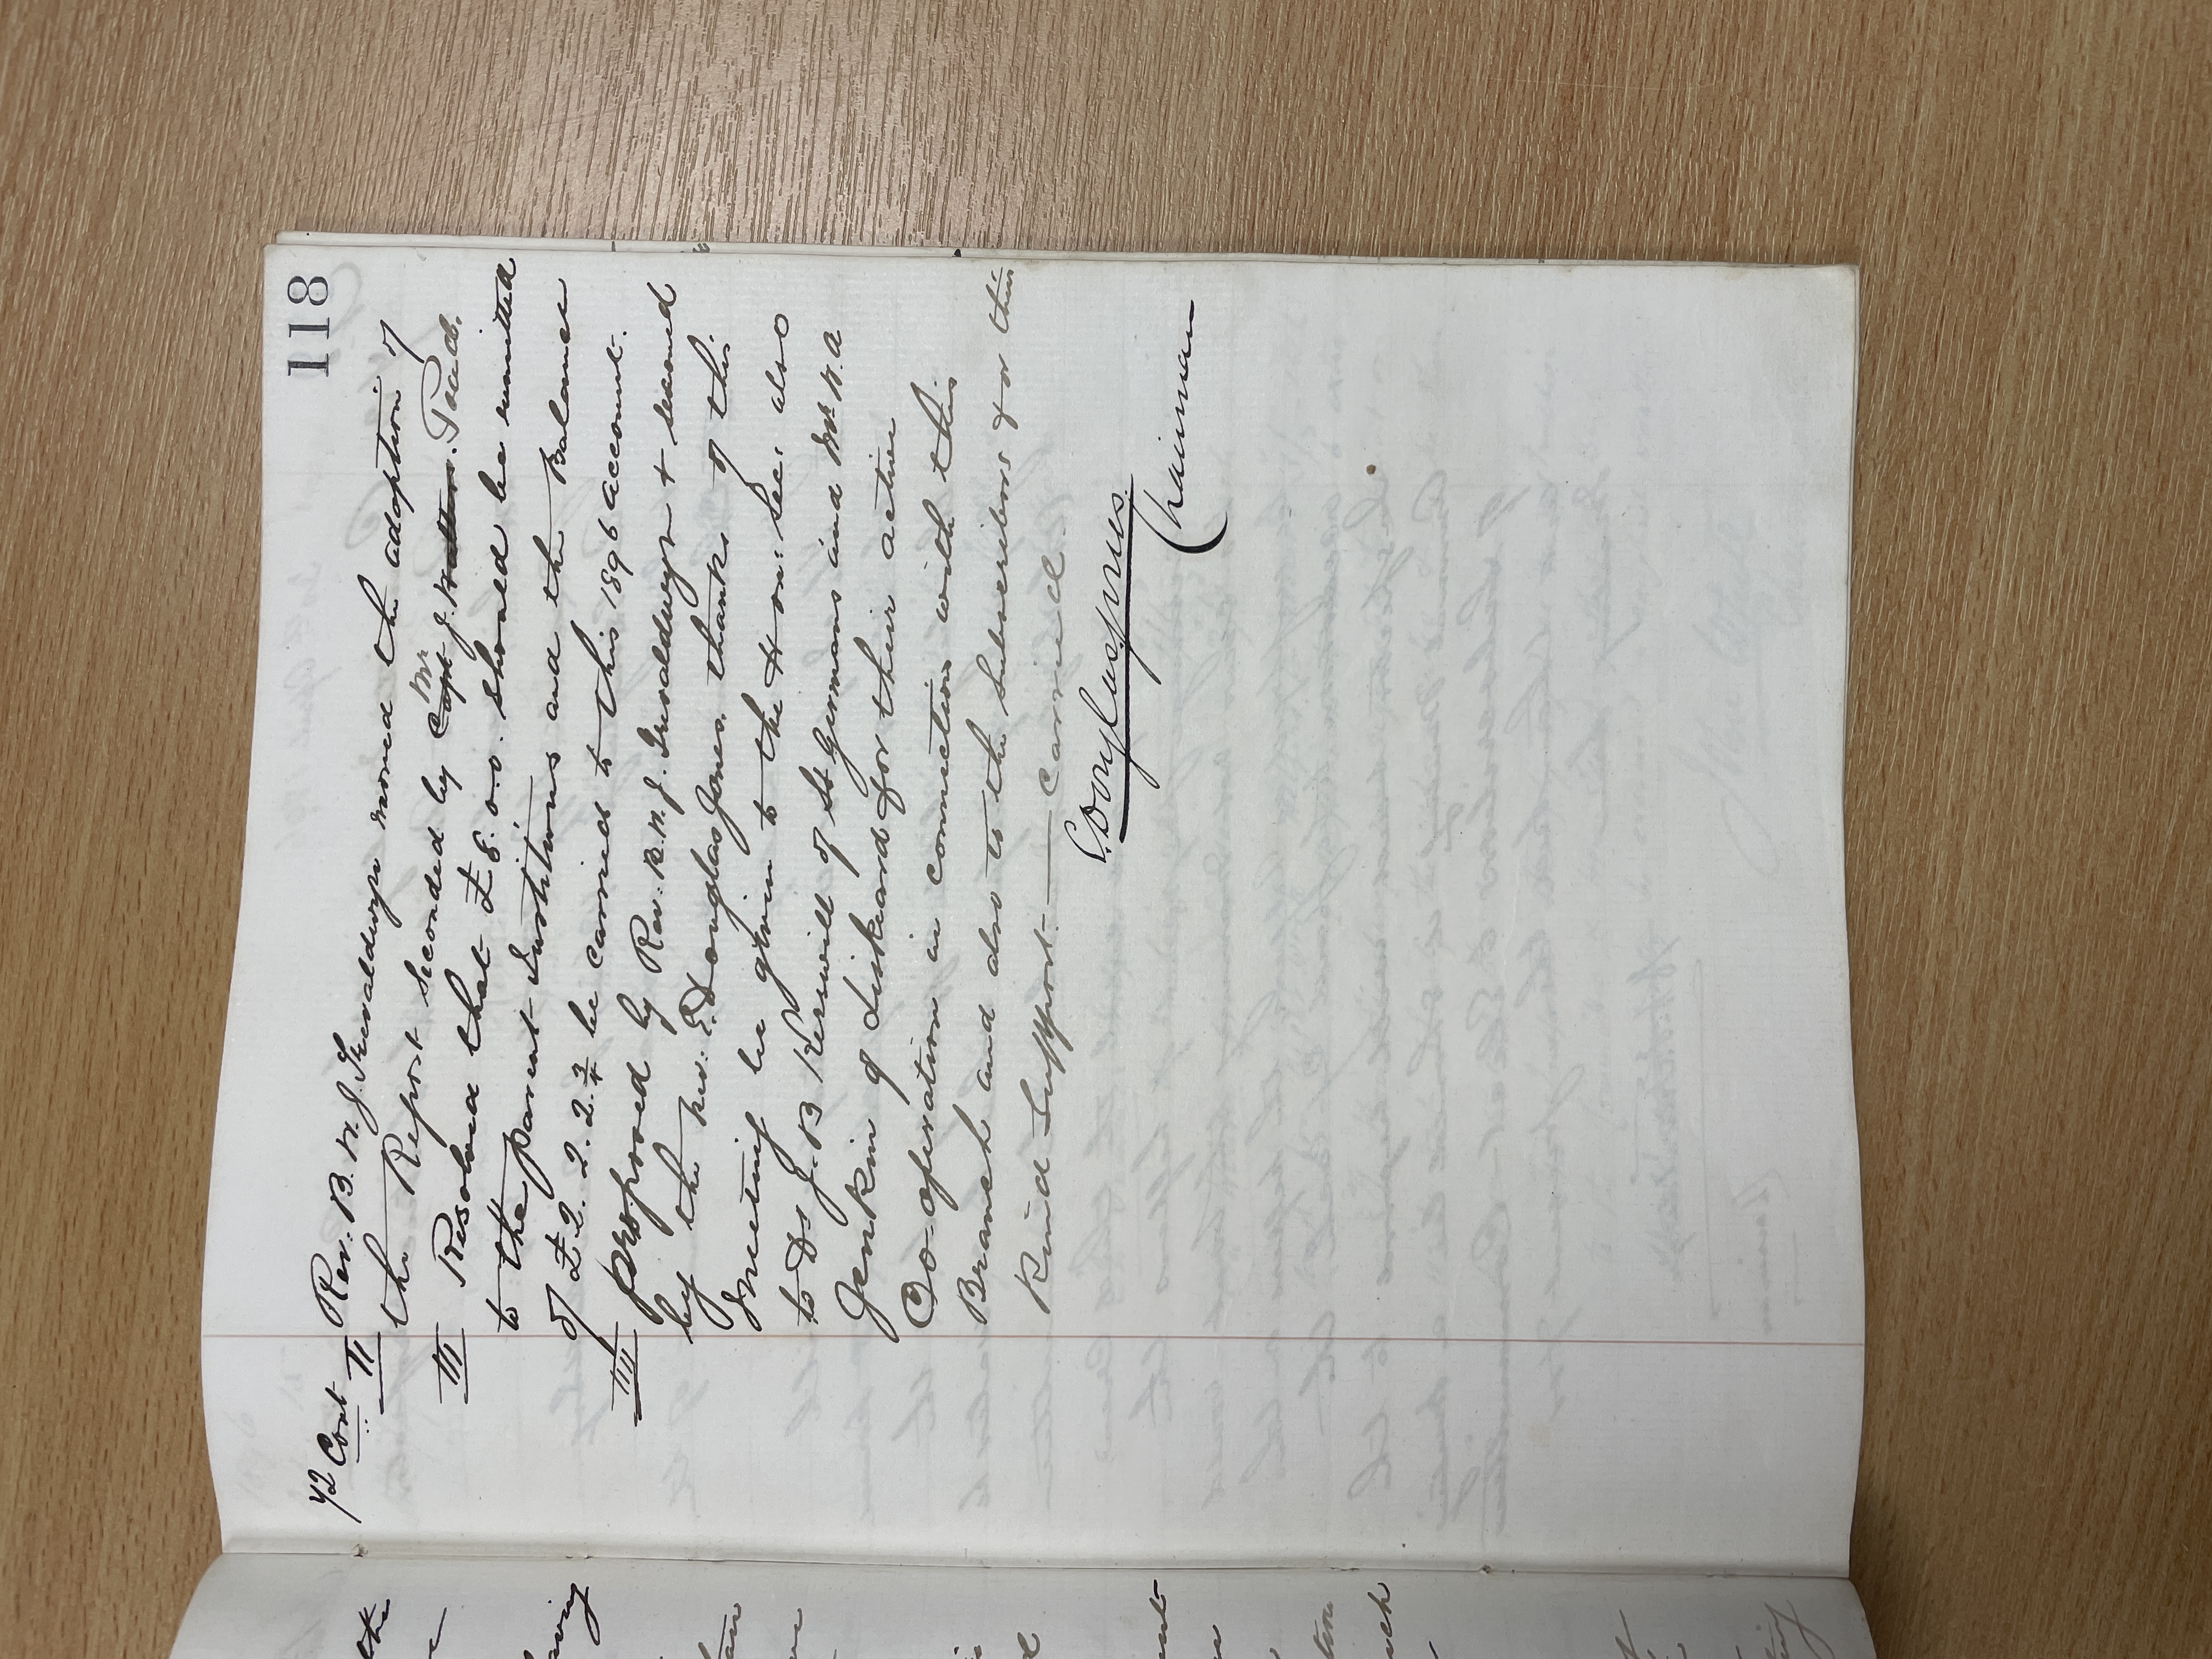 118
42 Cont Rev. B. W. J. Trevaldwyn moved the adoption of
II the Report seconded by Mr J. Toad.
III Resolved that £8.0.0. should be remitted
to the parent Institutions and the Balance
of £2.2.2.2¾ be carried to this 1896 account.
IIII proposed by Rev. B. W. J. Trevaldwyn & second
by the Rev. E. Douglas Jones, thanks of this
Meeting be given to the Hon: Sec. also
to Dr J. B Kerswill of St Germans and Mr W. A
Jenkin of Liskeard for their active
Co-operation in connection with this
Branch and also to the Subscribers for their
Kind Support. — Carried.
Chairman